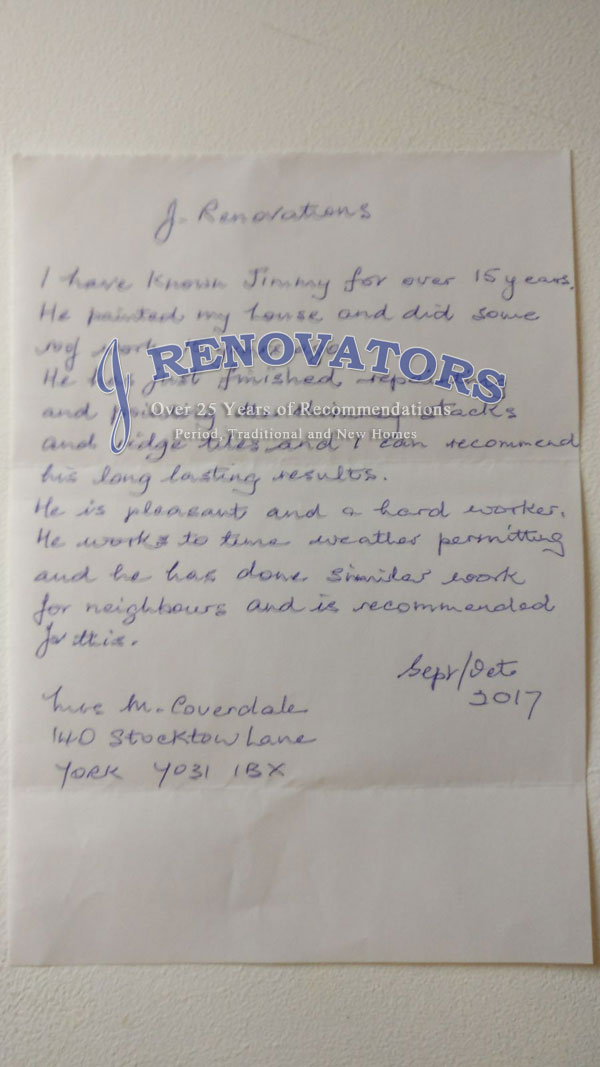 J. Renovations
I have known Jimmy for over 15 years.
He painted my house and did some
roof work
J RENOVATORS
He has just finished repairing
and pointing the chimney stacks
Over 25 Years of Recommendations
Period, Traditional and New Homes
and ridge tiles and I can recommend
his long lasting results.
He is pleasant and a hard worker.
He works to time weather permitting
and he has done similar work
for neighbours and is recommended
for this.
Sept/Oct
2017
Mrs M. Coverdale
140 Stockton Lane
York YO31 1BX